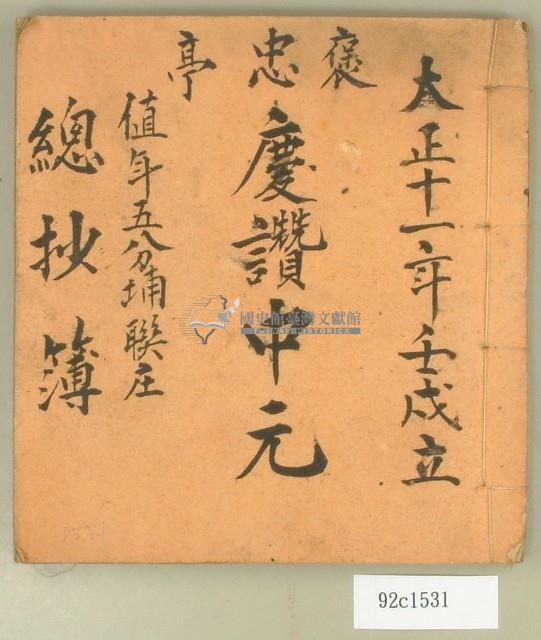 大正十一年壬戌立
褒忠亭
慶讚中元
值年五分埔聯庄
總抄簿
國史館臺灣文獻館
TAIWAN HISTORICA
92c1531
1531